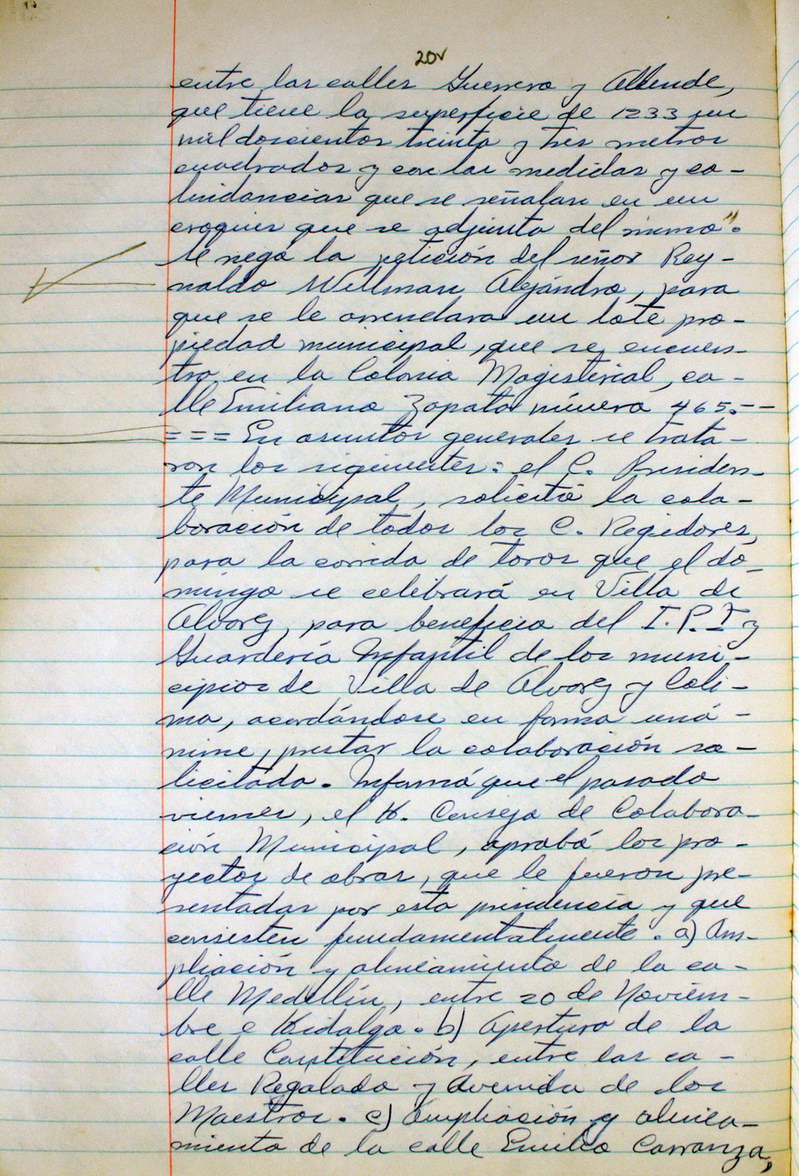 20v
entre las calles Guerrero y Allende,
que tiene la superficie de 1233 un
mil doscientos treinta y tres metros
cuadrados y con las medidas y co-
lindancias que se señalan en un
croquis que se adjunta del mismo".
Se negó la petición del señor Rey-
naldo Willman Alejandro, para
que se le arrendara un lote pro-
piedad municipal, que se encuen-
tra en la Colonia Magisterial, ca-
lle Emiliano Zapata número 465.--
=== En asuntos generales se trata-
ron los siguientes: el C. Presiden-
te Municipal, solicitó la cola-
boración de todos los C. Regidores,
para la corrida de toros que el do-
mingo se celebrará en Villa de
Alvarez, para beneficio del I.P.I y
Guardería Infantil de los muni-
cipios de Villa de Alvarez y Coli-
ma, acordándose en forma uná-
nime, prestar la colaboración so-
licitada. Informó que el pasado
viernes, el H. Consejo de Colabora-
ción Municipal, aprobó los pro-
yectos de obras, que le fueron pre-
sentadas por esta presidencia y que
consisten fundamentalmente. a) Am-
pliación y alineamiento de la ca-
lle Medellín, entre 20 de Noviem-
bre e Hidalgo. b) Apertura de la
calle Constitución, entre las ca-
lles Regalado y Avenida de los
Maestros. c) Ampliación y alinea-
miento de la calle Emilio Carranza,